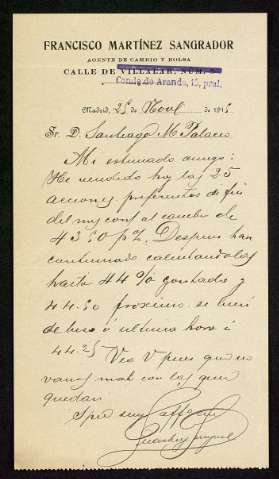 FRANCISCO MARTÍNEZ SANGRADOR
AGENTE DE CAMBIO Y BOLSA
CALLE DE VILLALAR, NÚM.
Conde de Aranda, 15, pral.
Madrid, 25 de Novbe de 1915
Sr. D. Santiago M. Palacio
Mi estimado amigo:
He vendido hoy las 25
acciones preferentes de fin
del mes conf al cambio de
43.50 p%. Despues han
continuado calentandolas
hasta 44 % contado y
44.50 proximo. se
a ultima hora a
44.25 Vea V pues que no
vamos mal con las que
quedan
Suyo